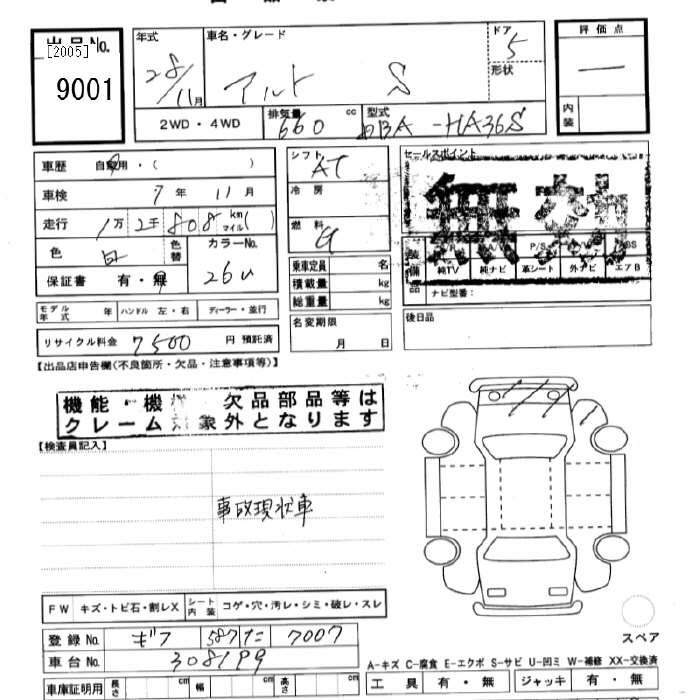 出品No.
[2005]
9001
年式 車名・グレード ドア 評価点
28/11月 アルト S 5 —
形状
2WD・4WD 排気量 660 cc 型式 DBA-HA36S 内装
車歴 自家用・( ) シフト AT セールスポイント
車検 7年 11月 冷房
走行 1万2千808km マイル( ) 燃料 G
色 白 色替 カラーNo. 26U
保証書 有・無
乗車定員 名
積載量 kg
総重量 kg
P/S ABS
純TV 純ナビ 革シート 外ナビ エアB
装備品 ナビ型番:
モデル年式 年 ハンドル 左・右 ディーラー・並行
名変期限 月 日
後日品
リサイクル料金 7500 円 預託済
【出品店申告欄(不良箇所・欠品・注意事項等)】
機能・機 欠品部品等は
クレーム対象外となります
【検査員記入】
事故現状車
FW キズ・トビ石・割レX シート内装 コゲ・穴・汚レ・シミ・破レ・スレ
登録No. ギフ 587 た 7007
車台No. 308199
スペア
A-キズ C-腐食 E-エクボ S-サビ U-凹ミ W-補修 XX-交換済
車庫証明用 長さ cm 幅 cm 高さ cm 工具 有・無 ジャッキ 有・無